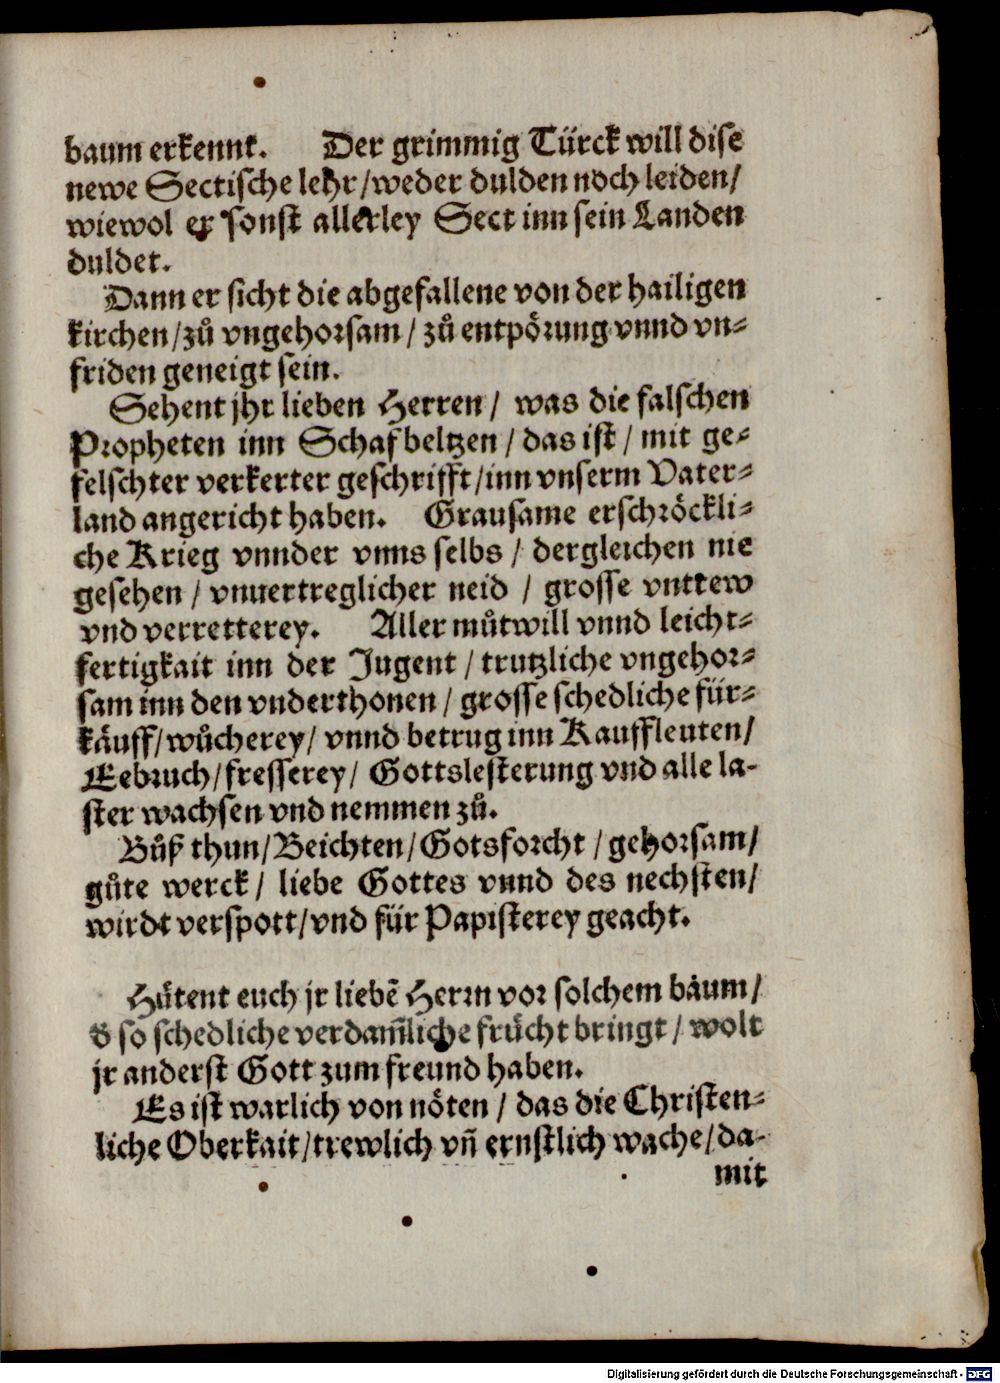 baum erkennt. Der grimmig Türck will dise
newe Sectische lehr/weder dulden noch leiden/
wiewol er sonst allerley Sect inn sein Landen
duldet.
Dann er sicht die abgefallene von der hailigen
kirchen/zů vngehorsam/ zů entpörung vnnd vn⸗
friden geneigt sein.
Sehent jhr lieben Herren/ was die falschen
Propheten inn Schafbeltzen/das ist/ mit ge⸗
felschter verkerter geschrifft/inn vnserm Vater⸗
land angericht haben. Grausame erschröckli⸗
che Krieg vnnder vnns selbs/ dergleichen nie
gesehen/ vnuertreglicher neid / grosse vntrew
vnd verretterey. Aller můtwill vnnd leicht⸗
fertigkait inn der Jugent/ trutzliche vngehor⸗
sam inn den vnderthonen/ grosse schedliche für⸗
käuff/wůcherey/ vnnd betrug inn Kauffleuten/
Eebruch/fresserey/ Gottslesterung vnd alle la-
ster wachsen vnd nemmen zů.
Bůß thun/Beichten/Gotsforcht/gehorsam/
gůte werck/ liebe Gottes vnnd des nechsten/
wirdt verspott/vnd für Papisterey geacht.
Hütent euch jr liebẽ Herrn vor solchem bäum/
d̕ so schedliche verdam̃liche frücht bringt/ wolt
jr anderst Gott zum freund haben.
Es ist warlich von nöten / das die Christen⸗
liche Oberkait/trewlich vñ ernstlich wache/da-
mit
Digitalisierung gefördert durch die Deutsche Forschungsgemeinschaft - DFG